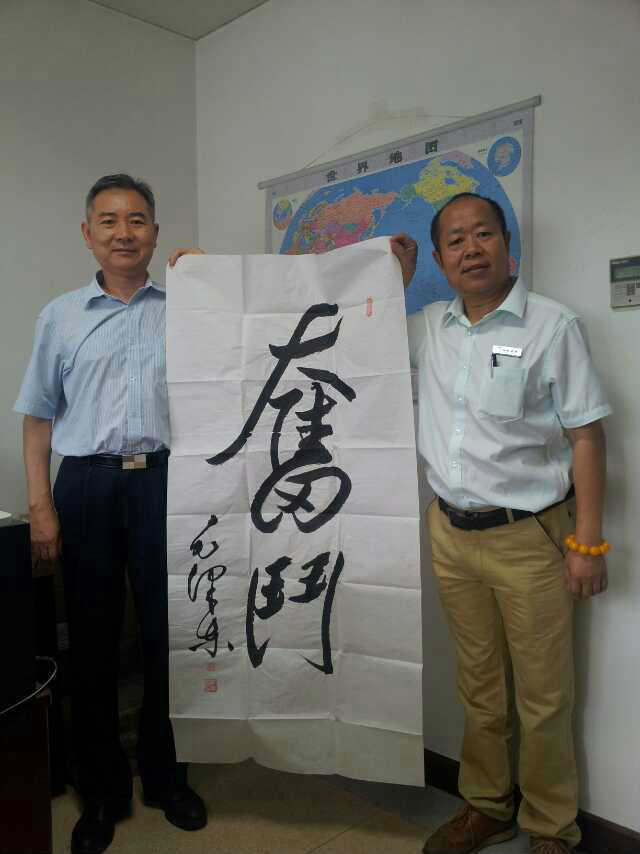 世界地图
奮
鬥
毛澤东